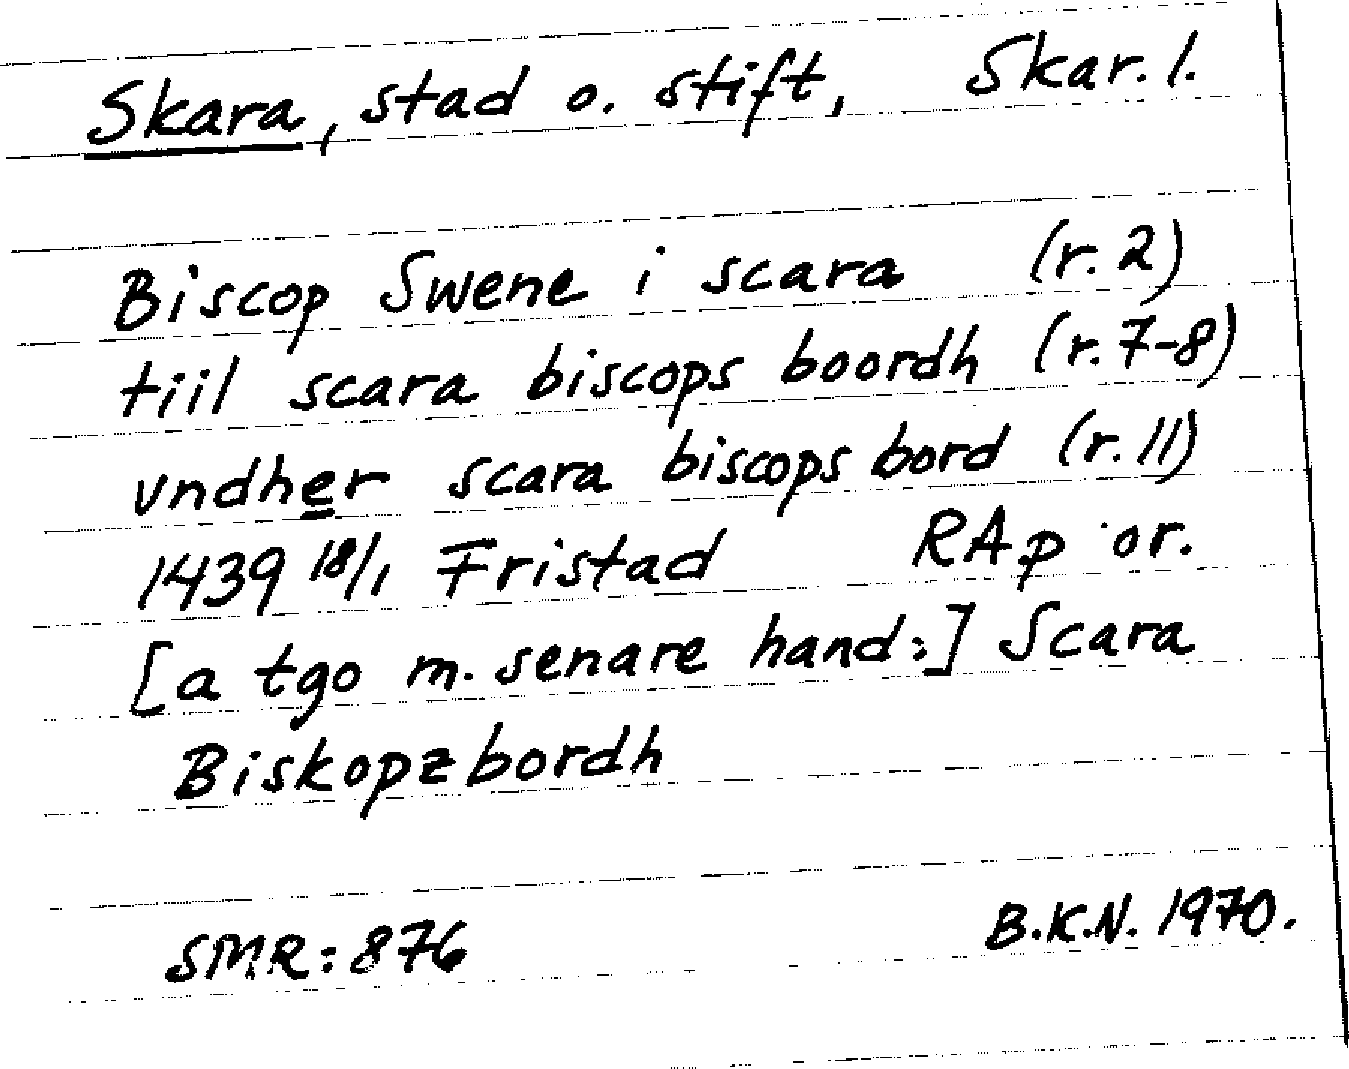 Skara, stad o. stift, Skar. l.
Biscop Swene i scara (r. 2)
tiil scara biscops boordh (r. 7-8)
vndher scara biscops bord (r. 11)
1439 18/1 Fristad RAp or.
[a tgo m. senare hand:] Scara
Biskopzbordh
SMR: 876 B.K.N. 1970.